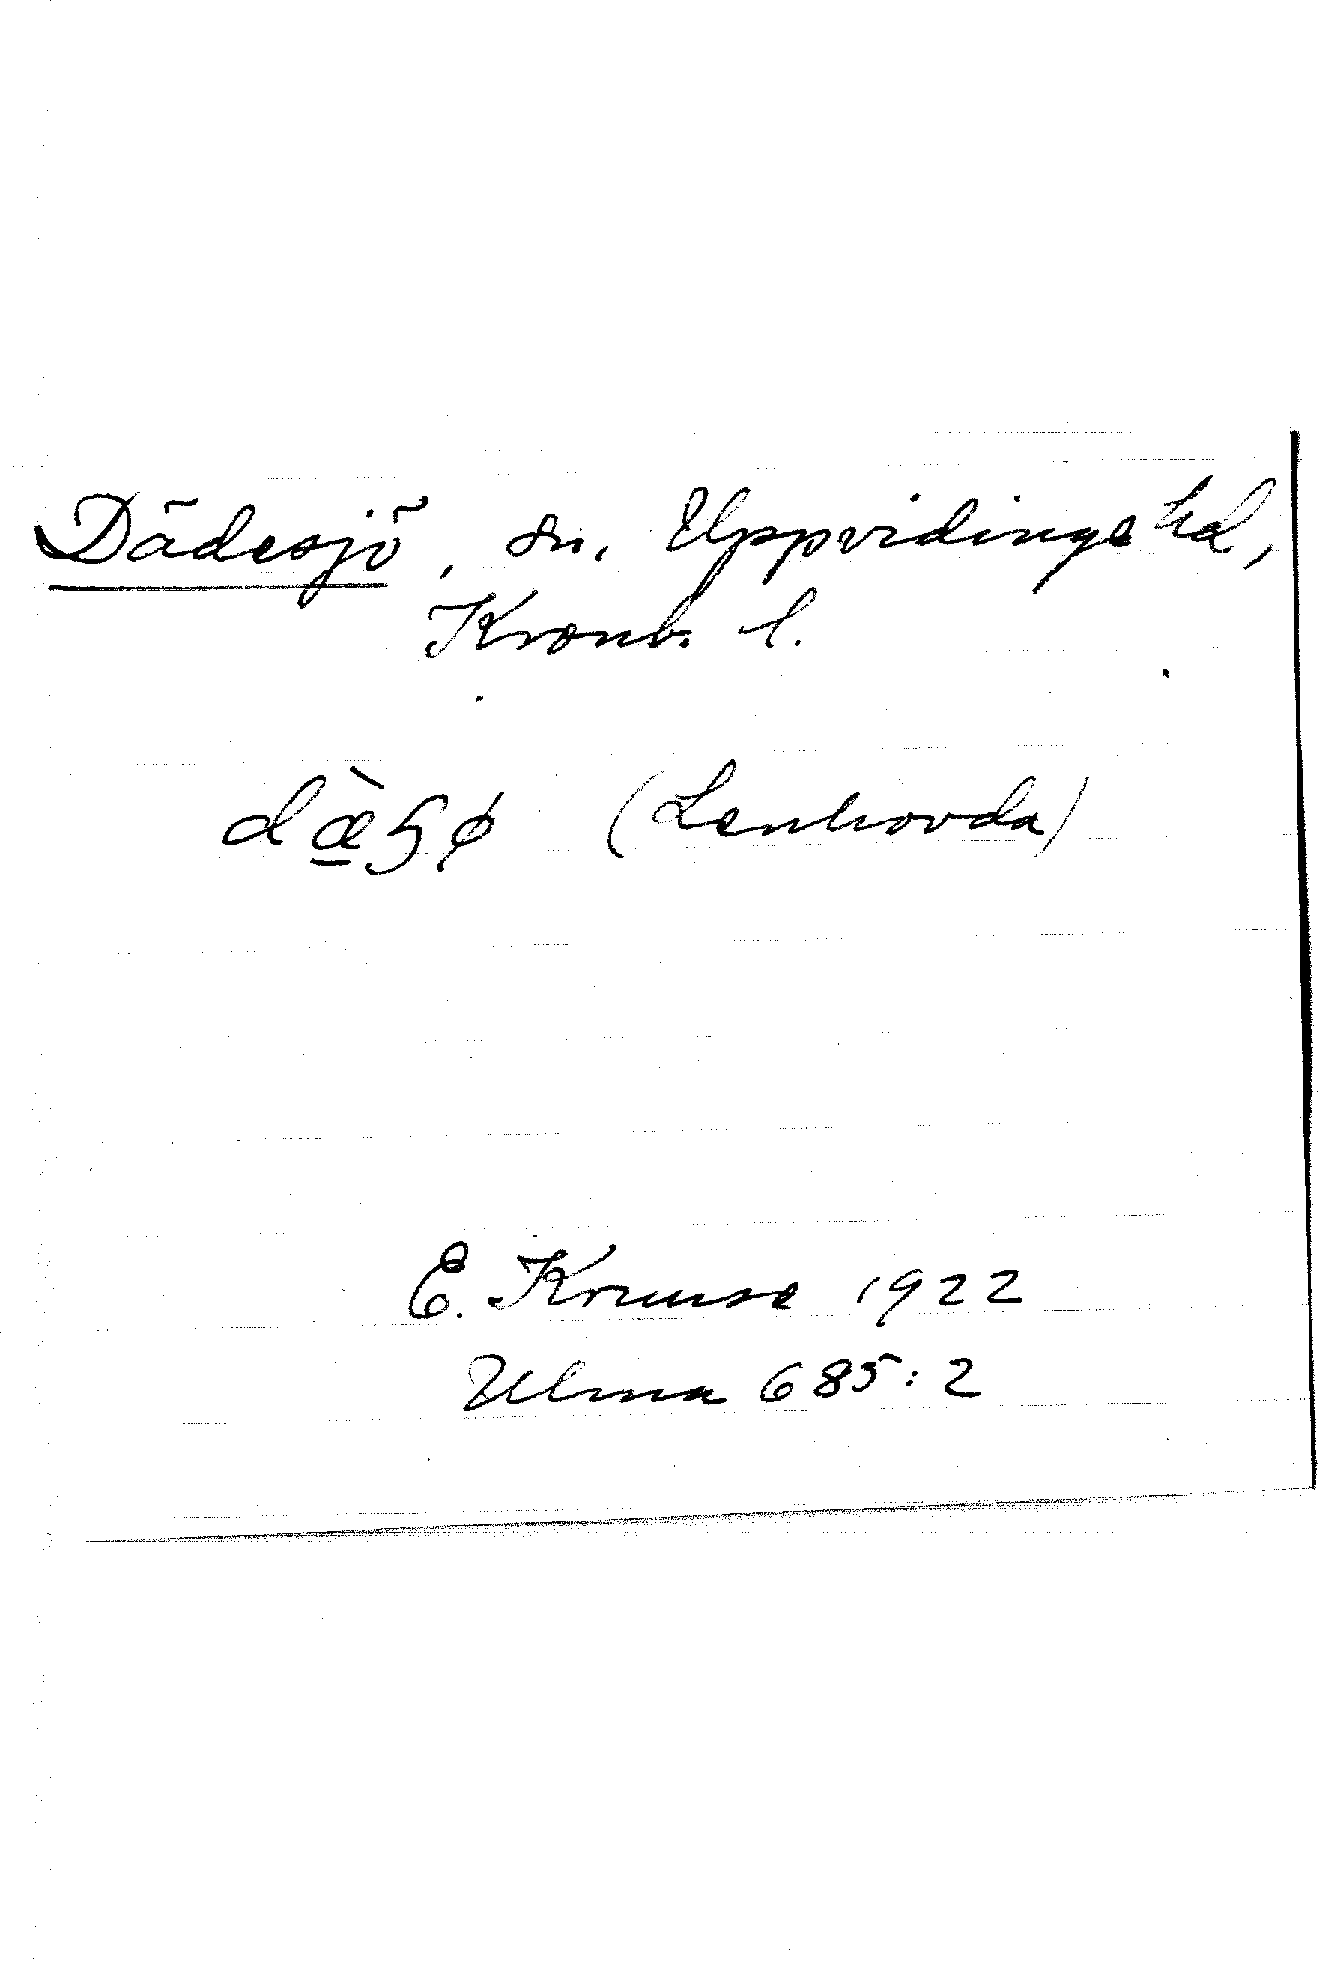 Dädesjö, sn, Uppvidinge hd,
Kronb. l.
dæ̱̀ɧø (Lenhovda)
E. Kruuse 1922
Ulma 685:2